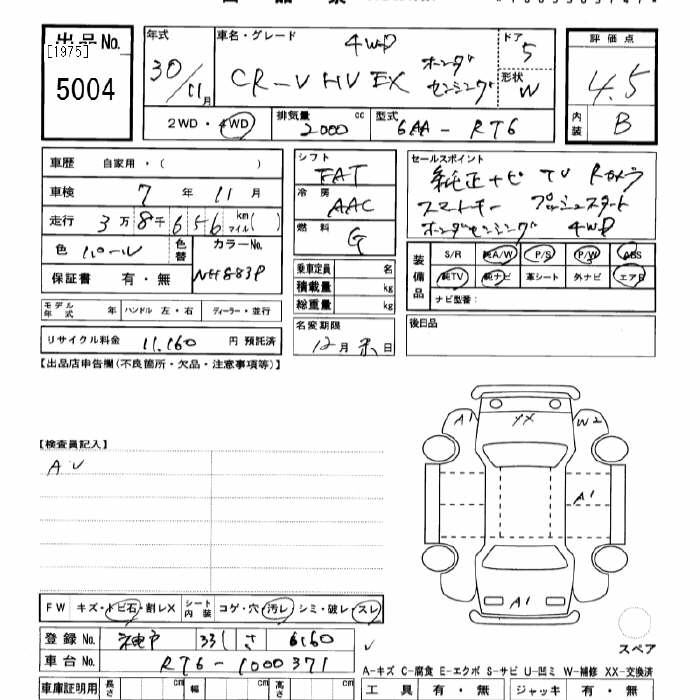 出品No.
[1975]
5004
年式
30/11月
車名・グレード
4WD
CR-V HV EX ホンダセンシング
ドア
5
形状
W
評価点
4.5
内装
B
2WD・4WD
排気量
2000 cc
型式
6AA - RT6
車歴 自家用・( )
車検 7年 11月
走行 3万8千656 km マイル( )
色 パール
色替
カラーNo.
NH883P
保証書 有・無
シフト
FAT
冷房
AAC
燃料
G
セールスポイント
純正ナビ TV Rカメラ
スマートキー プッシュスタート
ホンダセンシング 4WD
乗車定員 名
積載量 kg
総重量 kg
装備品
S/R 純A/W P/S P/W ABS
純TV 純ナビ 革シート 外ナビ エアB
ナビ型番:
モデル年式 年 ハンドル 左・右 ディーラー・並行
リサイクル料金 11,160 円 預託済
名変期限
12月末日
後日品
【出品店申告欄(不良箇所・欠品・注意事項等)】
【検査員記入】
AU
A1
YX
W2
A1
A1
スペア
FW キズ・トビ石・割レX
シート内装 コゲ・穴・汚レ・シミ・破レ・スレ
登録No. 神戸 331 さ 6160
車台No. RT6-1000371
A-キズ C-腐食 E-エクボ S-サビ U-凹ミ W-補修 XX-交換済
車庫証明用 長さ cm 幅 cm 高さ cm
工具 有・無 ジャッキ 有・無